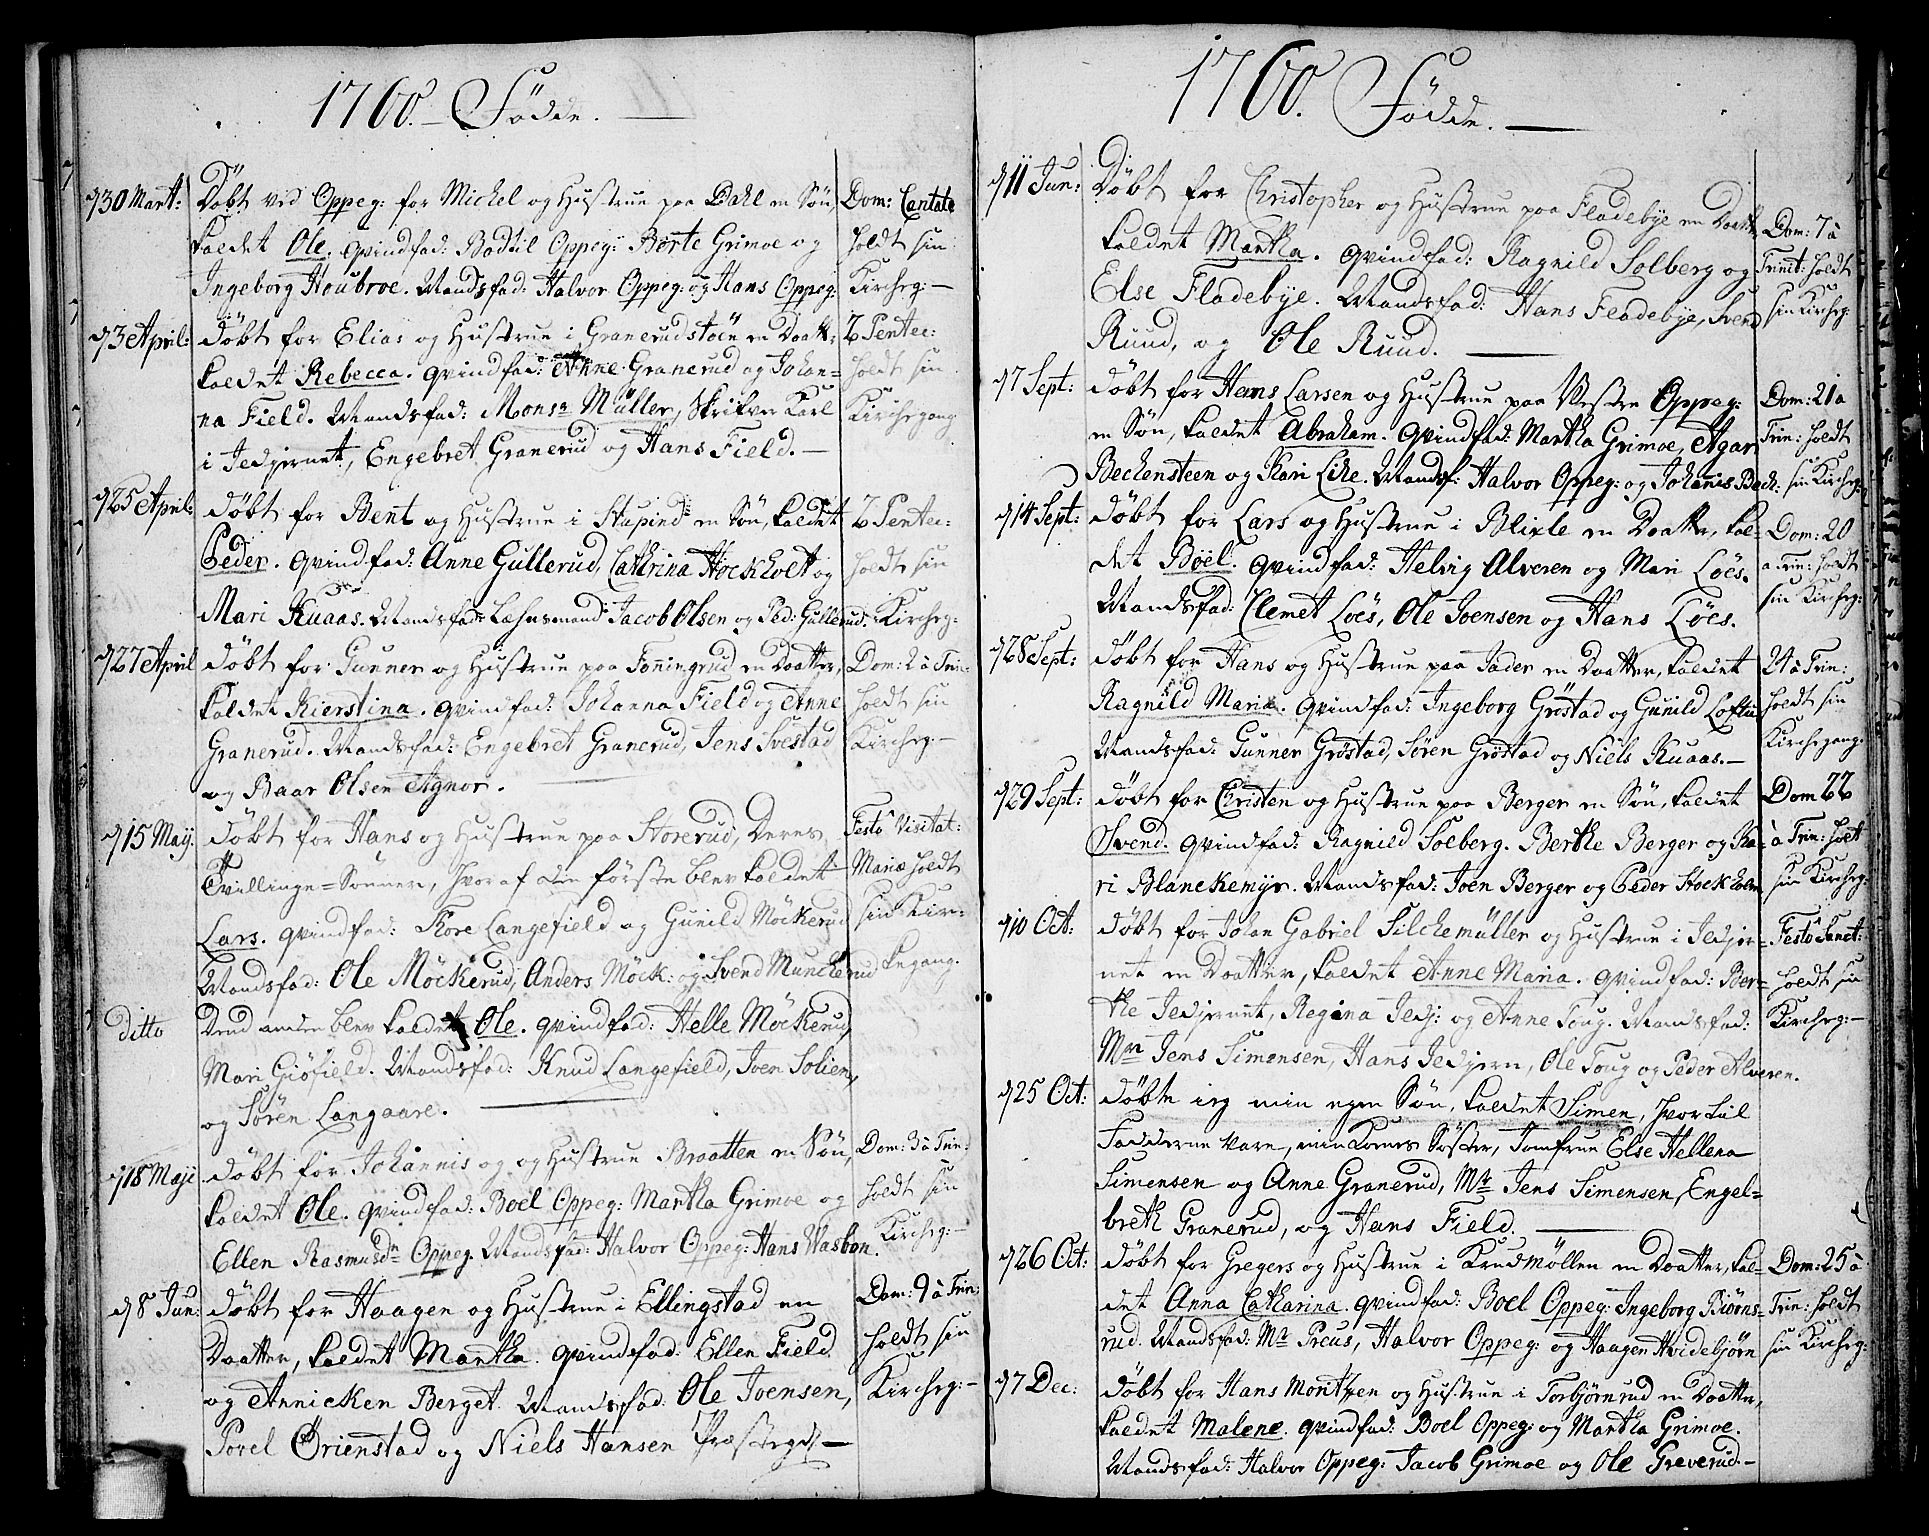 1760. Födde.
d 30 Mart:
Döbt ved Oppeg: for Michel og Hustrue paa Dahl en Sön,
kaldet Ole. qvindfad: Bodtil Oppeg: Börte Grimoe og
Ingeborg Houbroe. Mandsfad: Halvor Oppeg: og Hans Oppeg:
Dom: Cantate
holdt sin
Kircheg:
d 3 April:
döbt for Elias og Hustrue i Granerudstöen en Daatter
kaldet Rebecca. qvindfad: Anne Granerud og Johan-
na Field. Mandsfad: Monsr Müller, Skrifver Karl
i Jedjernet, Engebret Granerud og Hans Field.
2 Pentec:
holdt sin
Kirchegang
d 25 April:
döbt for Bent og Hustrue i Stupind: en Sön, kaldet
Peder. qvindfad: Anne Gullerud, Cathrina Hockholt og
Mari Kuaas. Mandsfad: Læhnsmand Jacob Olsen og Ped: Gullerud.
2 Pentec:
holdt sin
Kircheg:
d 27 April
döbt for Gunner og Hustrue paa Toningrud en Daatter,
kaldet Kierstina. qvindfad: Johanna Field og Anne
Granerud. Mandsfad: Engebret Granerud, Jens Svestad
og Baar Olsen Agnor.
Dom: 2 à Trin:
holdt sin
Kircheg:
d 15 Maij.
döbt for Hans og Hustrue paa Storerud, Deres
Tvillinge=Sönner, hvoraf den förste blev kaldet
Lars. qvindfad: Kore Langefield og Gunild Möckerud
Mandsfad: Ole Möckerud, Anders Möck: og Svend Munckerud
Festo Visitat:
Mariæ holdt
sin Kir-
kegang.
ditto
Dend anden blev kaldet Ole. qvindfad: Helle Möckerud,
Mari Giöfield. Mandsfad: Knud Langefield, Joen Solien,
og Sören Langaare.
d 18 Maji
döbt for Johannis og og Hustrue Braatten en Sön,
kaldet Ole. qvindfad: Boel Oppeg: Martha Grimoe og
Ellen Rasmusdn Oppeg. Mandsfad: Halvor Oppeg: Hans Wasbon.
Dom: 3 à Trin:
holdt sin
Kircheg:
d 8 Jun:
döbt for Haagen og Hustrue i Ellingstad en
Daatter, kaldet Martha. qvindfad: Ellen Field
og Annicken Berget. Mandsfad: Ole Joensen,
Porel Örienstad og Niels Hansen Præsteg:
Dom: 9 à Trin:
holdt sin
Kircheg:
1760. Födde.
d 11 Jun:
Döbt for Christopher og Hustrue paa Fladebye en Daatter
kaldet Martha. qvindfad: Ragnild Solberg og
Else Fladebye. Mandsfad: Hans Fladebye, Svend
Ruud, og Ole Ruud.
Dom: 7 à
Trinit: holdt
sin Kircheg:
d 7 Sept:
döbt for Hans Larsen og Hustrue paa Vestre Oppeg:
en Sön, kaldet Abraham. qvindfad: Martha Grimoe, Agar
Beckensteen og Kari Lihe. Mandsf: Halvor Oppeg: og Johannes Beck.
Dom: 21 a
Trin: holdt
sin Kircheg:
d 14 Sept:
döbt for Lars og Hustrue i Blixle en Daatter, kal-
det Böel. qvindfad: Helvig Alveren og Mari Löes.
Mandsfad: Clemet Löes, Ole Joensen og Hans Löes.
Dom: 20
a Trin: holdt
sin Kircheg:
d 28 Sept:
döbt for Hans og Hustrue paa Jader en Daatter, kaldet
Ragnild Maria. qvindfad: Ingeborg Gröstad og Gunild Loftu
Mandsfad: Gunner Gröstad, Sören Gröstad og Niels Kuaas.
24 à Trin:
holdt sin
Kirchegang.
d 29 Sept:
döbt for Christen og Hustrue paa Berger en Sön, kaldet
Svend. qvindfad: Ragnild Solberg. Berthe Berger og Ka-
ri Blanckemyr. Mandsfad: Joen Berger og Peder Stockholm
Dom 22
à Trin: holt
sin Kircheg:
d 10 Oct:
döbt for Johan Gabriel Silchemüller og Hustrue i Jedjer-
net en Daatter, kaldet Anne Maria. qvindfad: Ber-
the Jedjernet, Regina Jedj: og Anne Toug. Mandsfad:
Mr Jens Simensen, Hans Jedjern, Ole Toug og Peder Alveren.
Festo Sanct:
holdt sin
Kircheg:
d 25 Oct:
döbte jeg min egen Sön, kaldet Simen, hvortil
Fadderne vare, min Kones Söster, Jomfrue Else Hellena
Simensen og Anne Granerud, Mr Jens Simensen, Engel-
breth Granerud, og Hans Field.
d 26 Oct:
döbt for Gregers og Hustrue i Krudmöllen en Daatter, kal-
det Anna Catharina. qvindfad: Boel Oppeg: Ingeborg Biörns-
rud. Mandsfad: Mr Preus, Halvor Oppeg: og Haagen Hvidebjörn
Dom: 25 à
Trin: holdt
sin Kircheg:
d 7 Dec:
döbt for Hans Montzen og Hustrue i Torbjörnrud en Daatter,
kaldet Malene. qvindfad: Boel Oppeg: og Martha Grimoe.
Mandsfad: Halvor Oppeg: Jacob Grimoe og Ole Greverud.